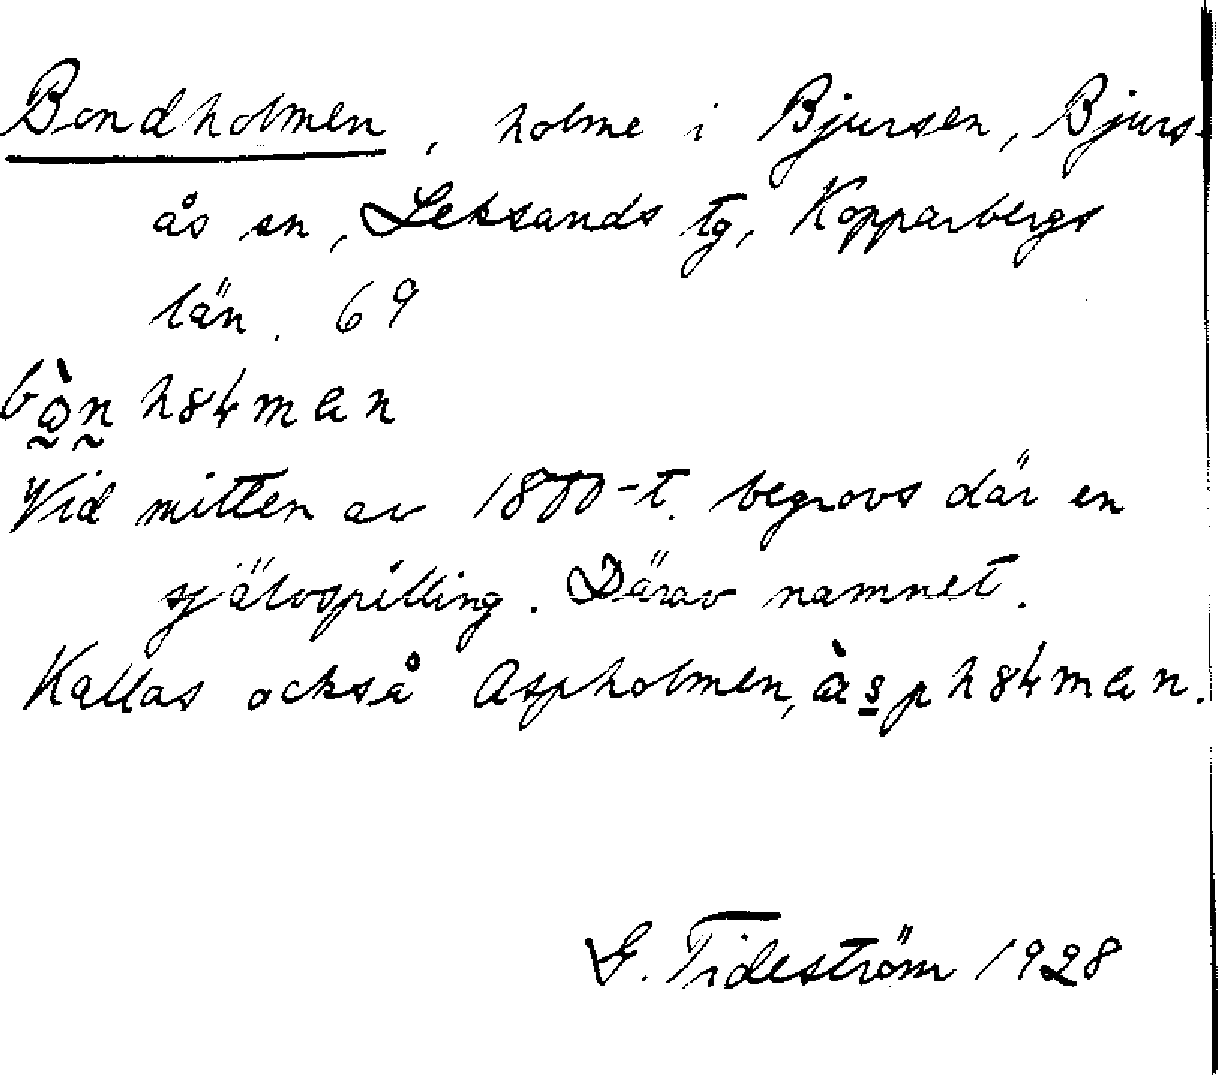 Bondholmen, holme i Bjursen, Bjurs-
ås sn, Leksands tg, Kopparbergs
län. 69
Vid mitten av 1800-t. begrovs där en
självspilling. Därav namnet.
Kallas också Aspholmen,
G. Tideström 1928